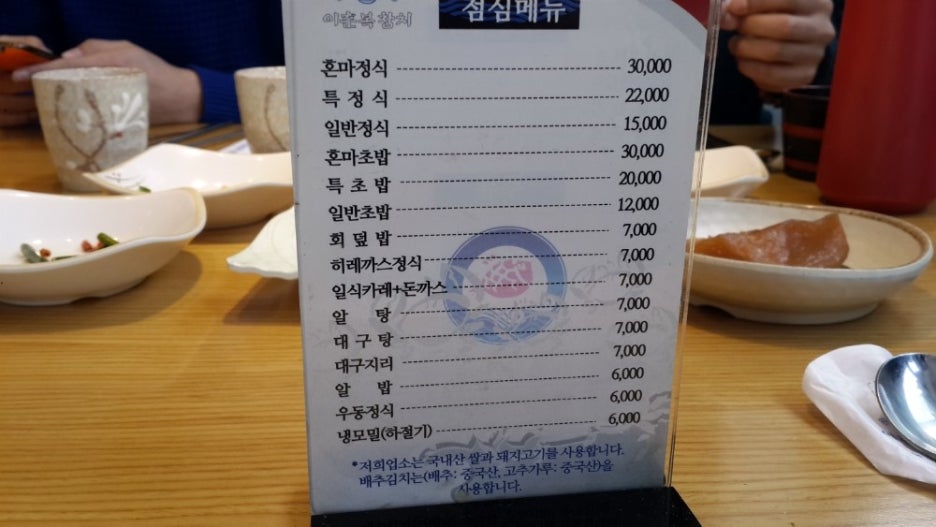 이춘복참치
점심메뉴
혼마정식 30,000
특 정 식 22,000
일반정식 15,000
혼마초밥 30,000
특 초 밥 20,000
일반초밥 12,000
회 덮 밥 7,000
히레까스정식 7,000
일식카레+돈까스 7,000
알 탕 7,000
대 구 탕 7,000
대구지리 7,000
알 밥 6,000
우동정식 6,000
냉모밀(하절기) 6,000
*저희업소는 국내산 쌀과 돼지고기를 사용합니다.
배추김치는(배추: 중국산, 고추가루: 중국산)을
사용합니다.